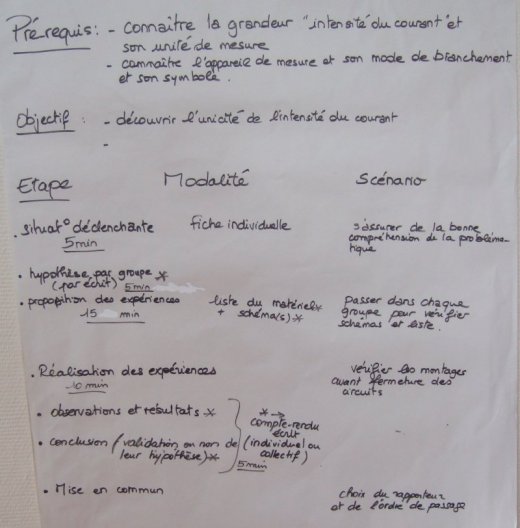 Pré-requis : - connaître la grandeur "intensité du courant" et
son unité de mesure
- connaître l'appareil de mesure et son mode de branchement
et son symbole.
Objectif : - découvrir l'unicité de l'intensité du courant
-
Etape Modalité Scénario
. situat° déclenchante fiche individuelle s'assurer de la bonne
5min compréhension de la probléma-
tique
. hypothèse par groupe *
(par écrit) 5 min
. proposition des expériences liste du matériel* passer dans chaque
15 min + schéma(s) * groupe pour vérifier
schémas et liste.
. Réalisation des expériences vérifier les montages
10 min avant fermeture des
circuits
. observations et résultats * * →
compte-rendu
écrit
. conclusion (validation ou non de (individuel ou
leur hypothèse) * collectif)
5min
. Mise en commun choix du rapporteur
et de l'ordre de passage